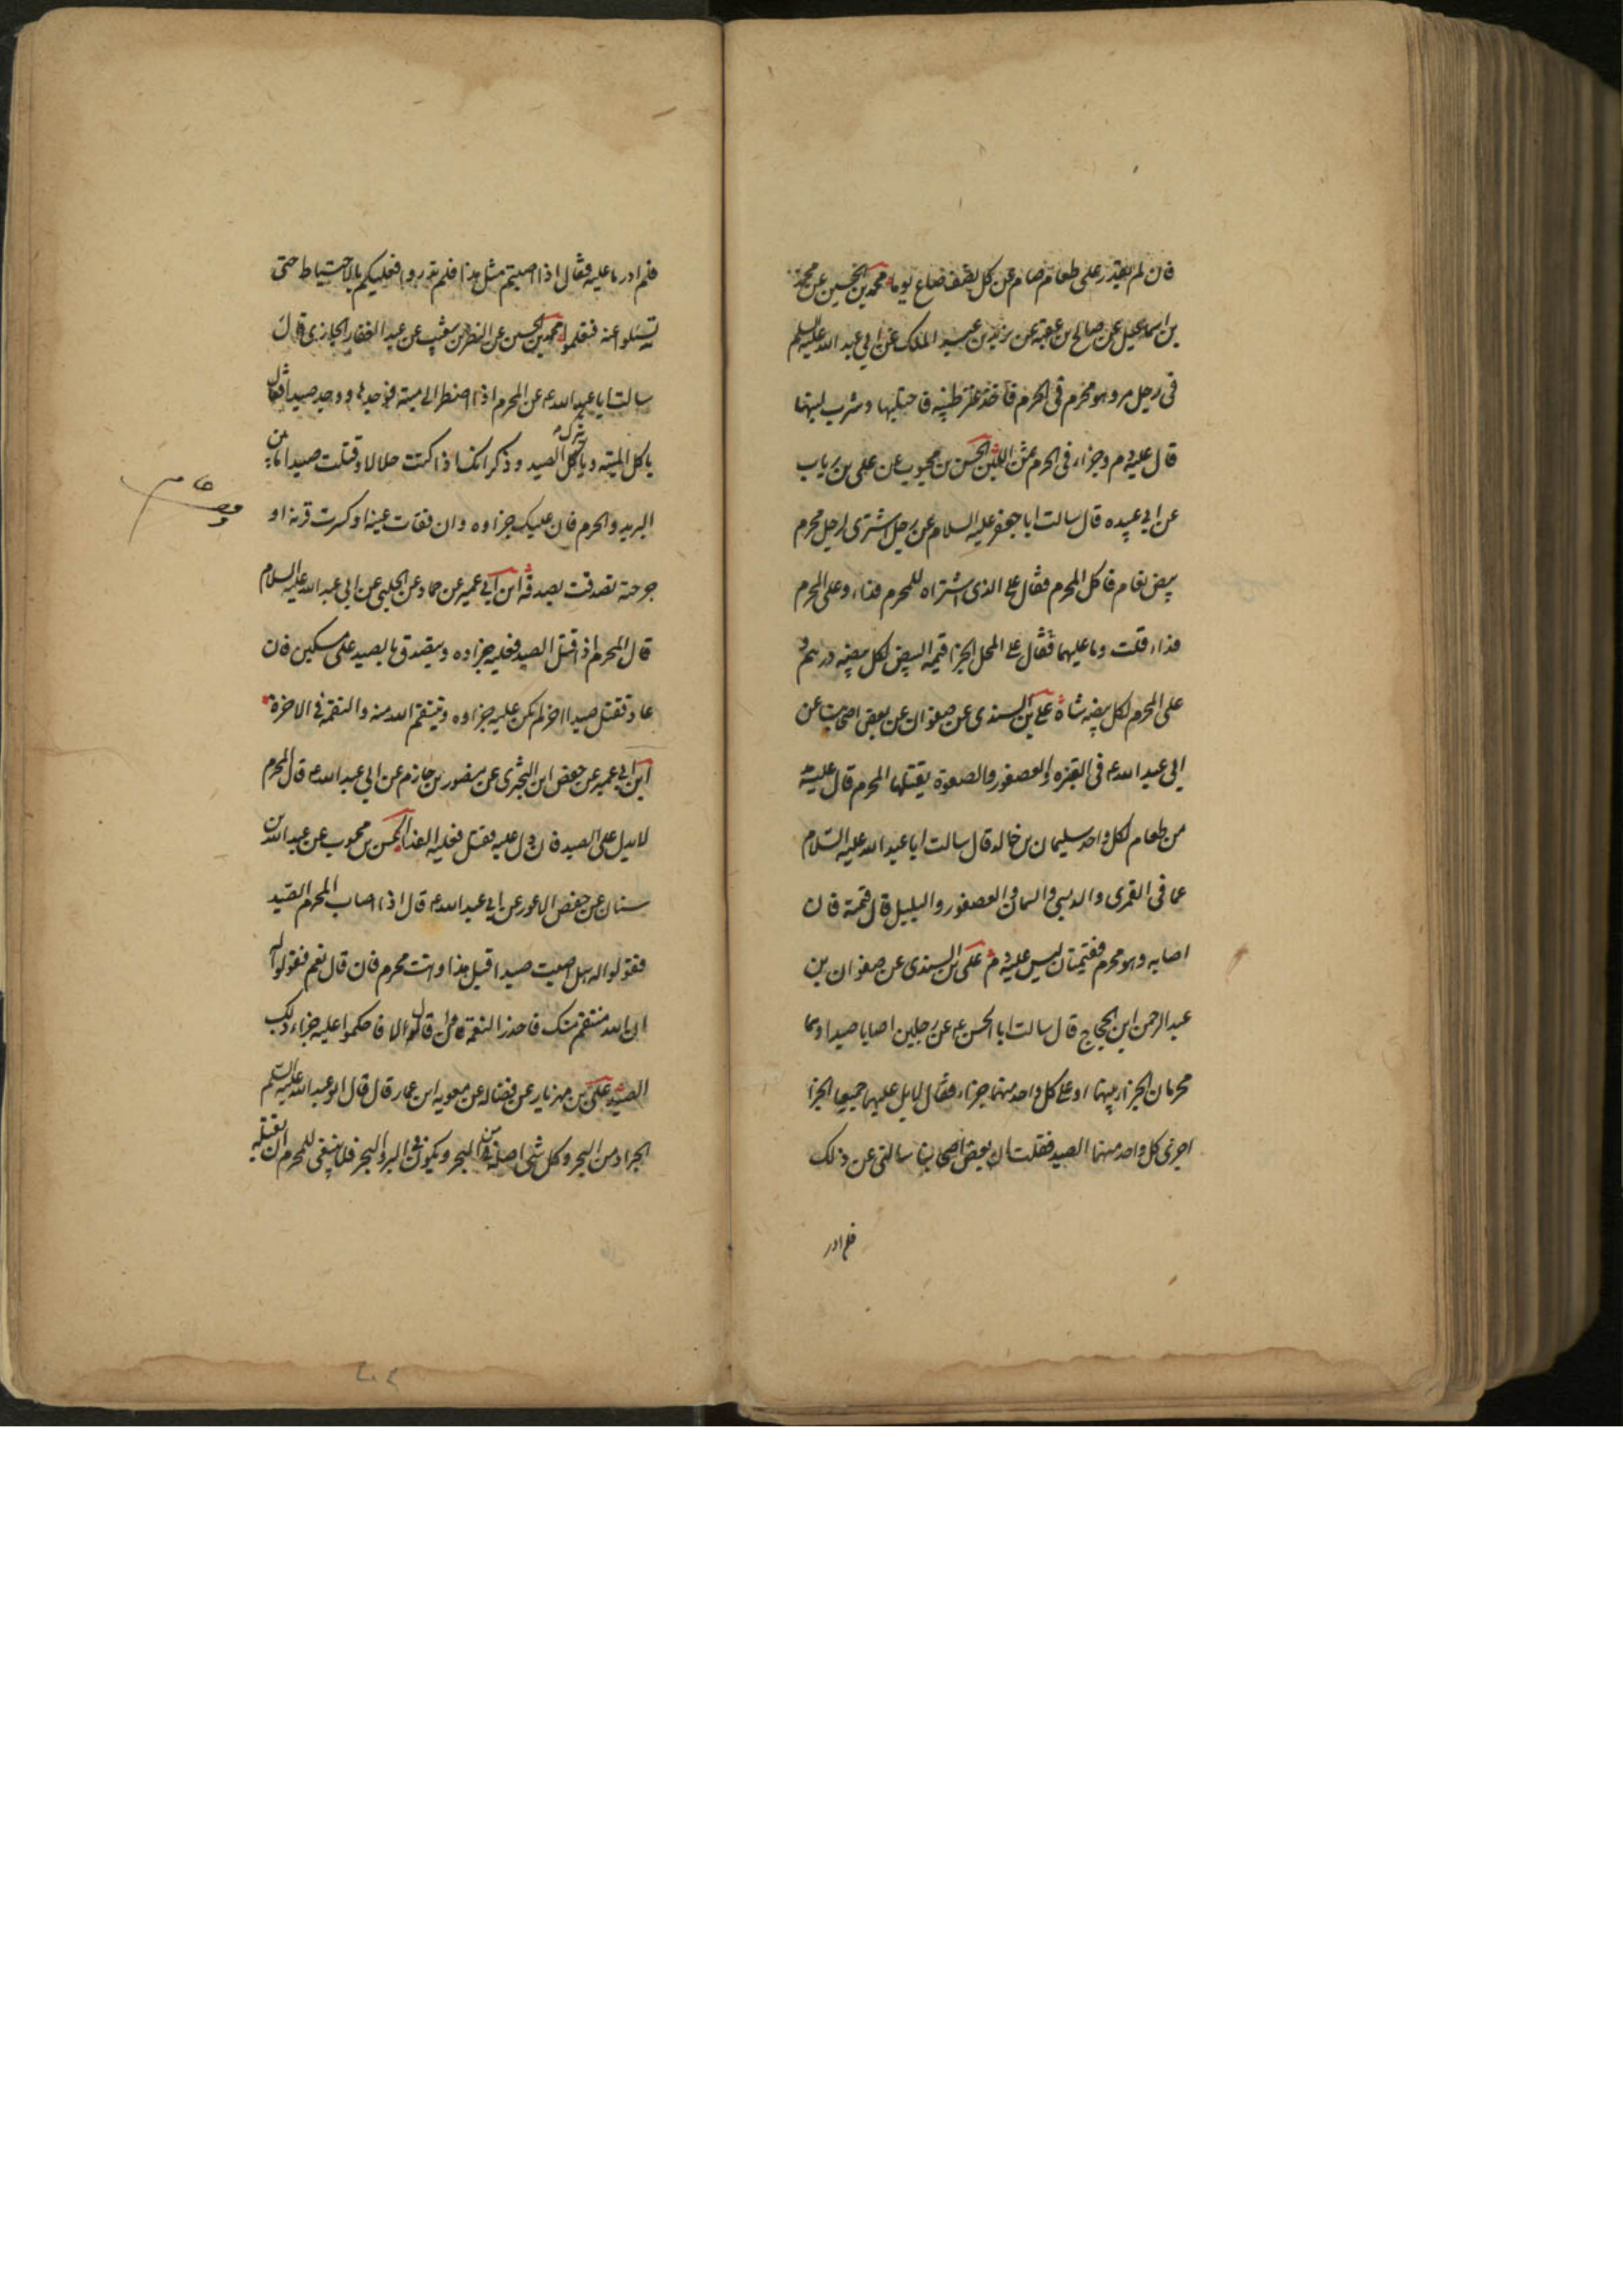 فان لم يقدر على طعام صام عن كل نصف صاع يوما محمد بن الحسين عن محمد
بن اسماعيل عن صالح بن عقبة عن يزيد بن عبد الملك عن ابي عبد الله عليه السلم
فى رجل مر وهو محرم فى الحرم فاخذ عنز ظبيه فاحتلبها وشرب لبنها
قال عليه دم وجزاء فى الحرم ثمن اللبن الحسن بن محبوب عن على بن رياب
عن ابي عبيده قال سالت ابا جعفر عليه السلام عن رجل اشترى لرجل محرم
بيض نعام فاكل المحرم فقال على الذى اشتراه للمحرم فداء وعلى المحرم
فداء قلت وما عليهما فقال على المحل الجزا قيمة البيض لكل بيضه درهم و
على المحرم لكل بيضه شاة على بن السندى عن صفوان عن بعض اصحابنا عن
ابى عبد الله ع فى القبره والعصفور والصعوة يقتلها المحرم قال عليه مد
من طعام لكل واحد سليمان بن خالد قال سالت ابا عبد الله عليه السلام
عما فى القمرى والدبسى والسمانى والعصفور والبلبل قال قيمته فان
اصابه وهو محرم فقيمتان ليس عليه دم على بن السندى عن صفوان بن
عبد الرحمن ابن الحجاج قال سالت ابا الحسن ع عن رجلين اصابا صيدا وهما
محرمان الجزا بينهما او على كل واحد منهما جزاء فقال لا بل عليهما جميعا الجزا
اجزى كل واحد منهما الصيد فقلت ان بعض اصحابنا سالنى عن ذلك
فلم ادر
فلم ادر ما عليه فقال اذا اصبتم مثل هذا فلم تدروا فعليكم بالاحتياط حتى
تسئلوا عنه فتعلموا محمد بن الحسين عن النضر بن شعيب عن عبد الغفار الجازى قال
سالت ابا عبد الله ع عن المحرم اذا اضطر الى ميته فوجدها ووجد صيدا فقال
ياكل الميته ويترك الصيد وذكر انك اذا كنت حلالا وقتلت صيدا ما بين
البريد والحرم فان عليك جزاوه وان فقات عينه او كسرت قرنه او
جرحته تصدقت بصدقه ابن ابي عمير عن حماد عن الحلبى عن ابى عبد الله عليه السلام
قال المحرم اذا قتل الصيد فعليه جزاوه ويتصدق بالصيد على مسكين فان
عاد فقتل صيدا اخر لم يكن عليه جزاوه وينتقم الله منه والنقمة فى الاخرة
ابن ابي عمير عن حفص ابن البخترى عن منصور بن حازم عن ابي عبد الله ع قال المحرم
لا يدل على الصيد فان دل عليه فقتل فعليه الفدا الحسن بن محبوب عن عبد الله بن
سنان عن حفص الاعور عن ابي عبد الله ع قال اذا اصاب المحرم الصيد
فقولوا له هل اصبت صيدا قبل هذا وانت محرم فان قال نعم فقولوا له
ان الله منتقم منك فاحذر النقمة فان قال لا فاحكموا عليه جزاء ذلك
الصيد على بن مهزيار عن فضاله عن معويه ابن عمار قال قال ابو عبد الله عليه السلم
الجراد من البحر وكل شى اصله من البحر ويكون فى البر والبحر فلا ينبغى للمحرم ان يقتله